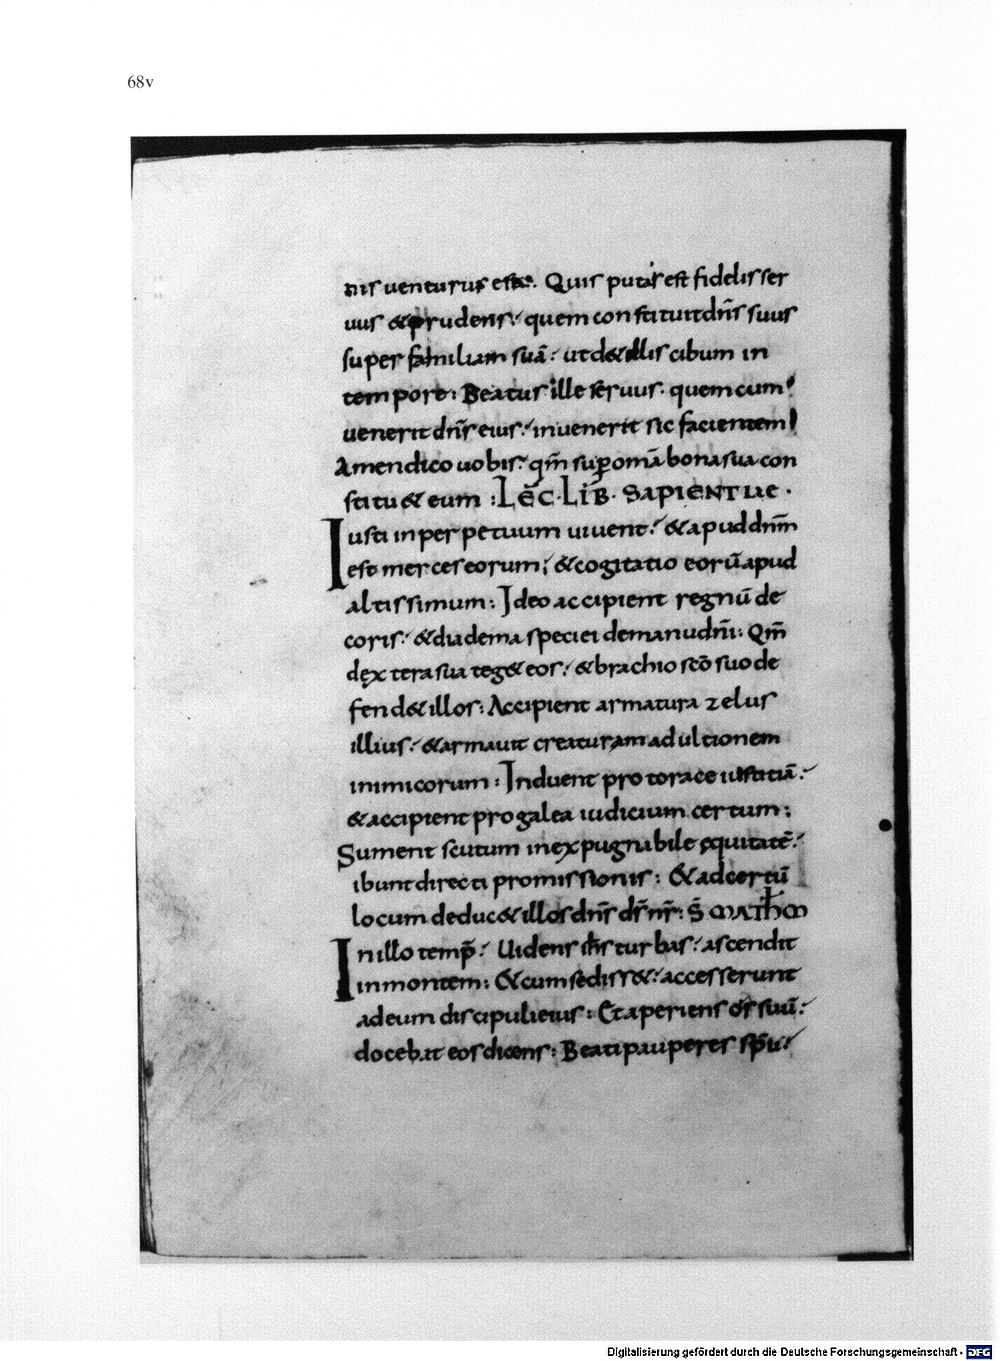 68v
nis uenturus est. Quis putas est fidelis ser
uus & prudens: quem constituit dn̄s suus
super familiam suā: ut d& illis cibum in
tempore: Beatus ille seruus. quem cum
uenerit dn̄s eius: inuenerit sic facientem
Amen dico uobis: qm̄ sup omā bona sua con
stitu& eum: LEC̄. LIB̄. SAPIENTIAE.
Iusti in perpetuum uiuent: & apud dnm̄
est merces eorum; & cogitatio eorū apud
altissimum: Ideo accipient regnū de
coris: & diadema speciei de manu dn̄i: Qm̄
dęxtera sua teg& eos: & brachio scō suo de
fend& illos: Accipient armatura zelus
illius: & armauit creaturam ad ultionem
inimicorum: Induent pro torace iustitiā:
& accipient pro galea iudicium certum:
Sument scutum inexpugnabile ęquitatē:
ibunt directi promissionis: & ad certū
locum deduc& illos dn̄s ds̄ nr̄: S̄ MATHM
In illo temp̄: Uidens ih̄s turbas: ascendit
in montem: & cum sediss&: accesserunt
ad eum discipuli eius: Et aperiens os suū:
docebat eos dicens: Beati pauperes sp̄u:
Digitalisierung gefördert durch die Deutsche Forschungsgemeinschaft - DFG